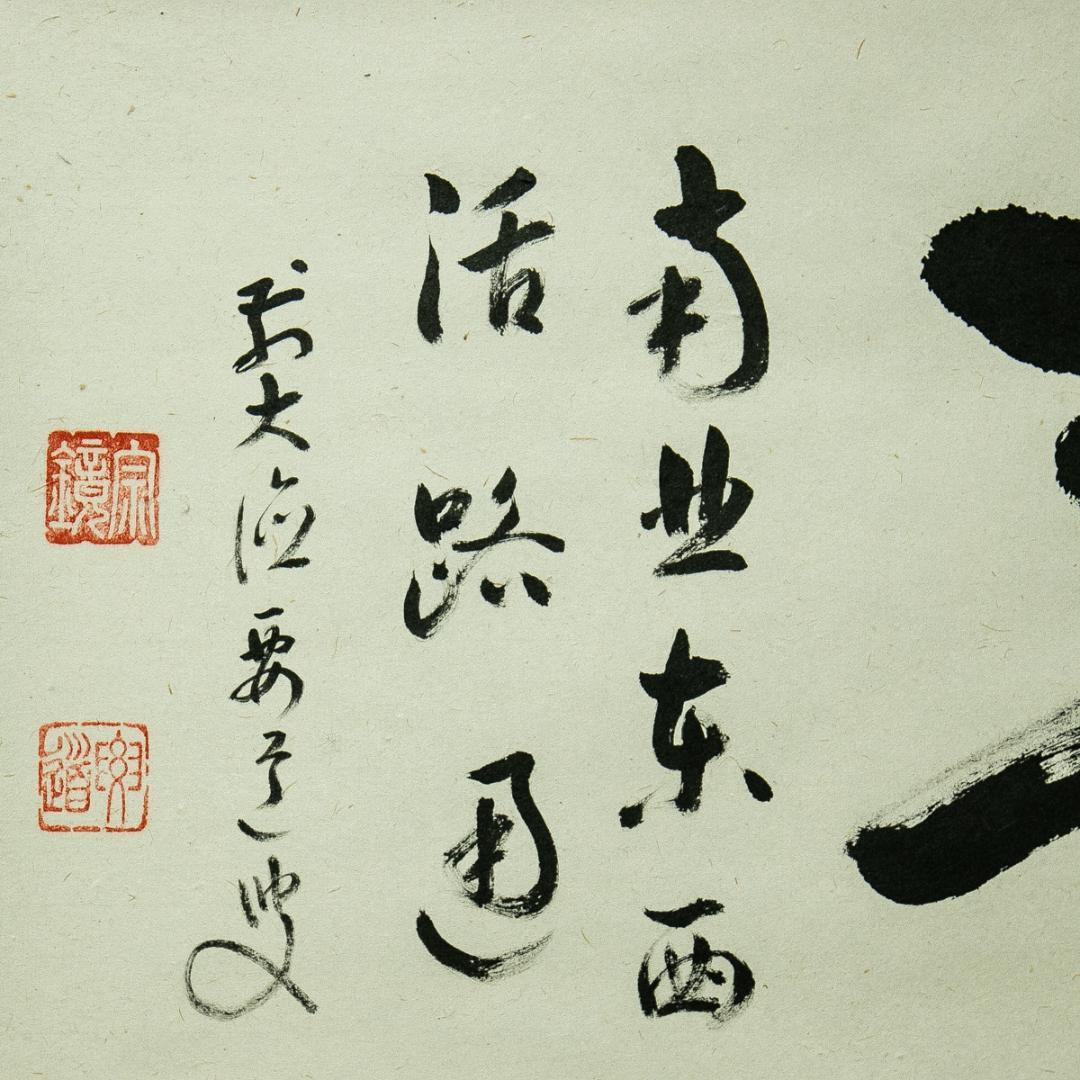 南北東西
活路通
前大徳要道叟
宗鏡
要道